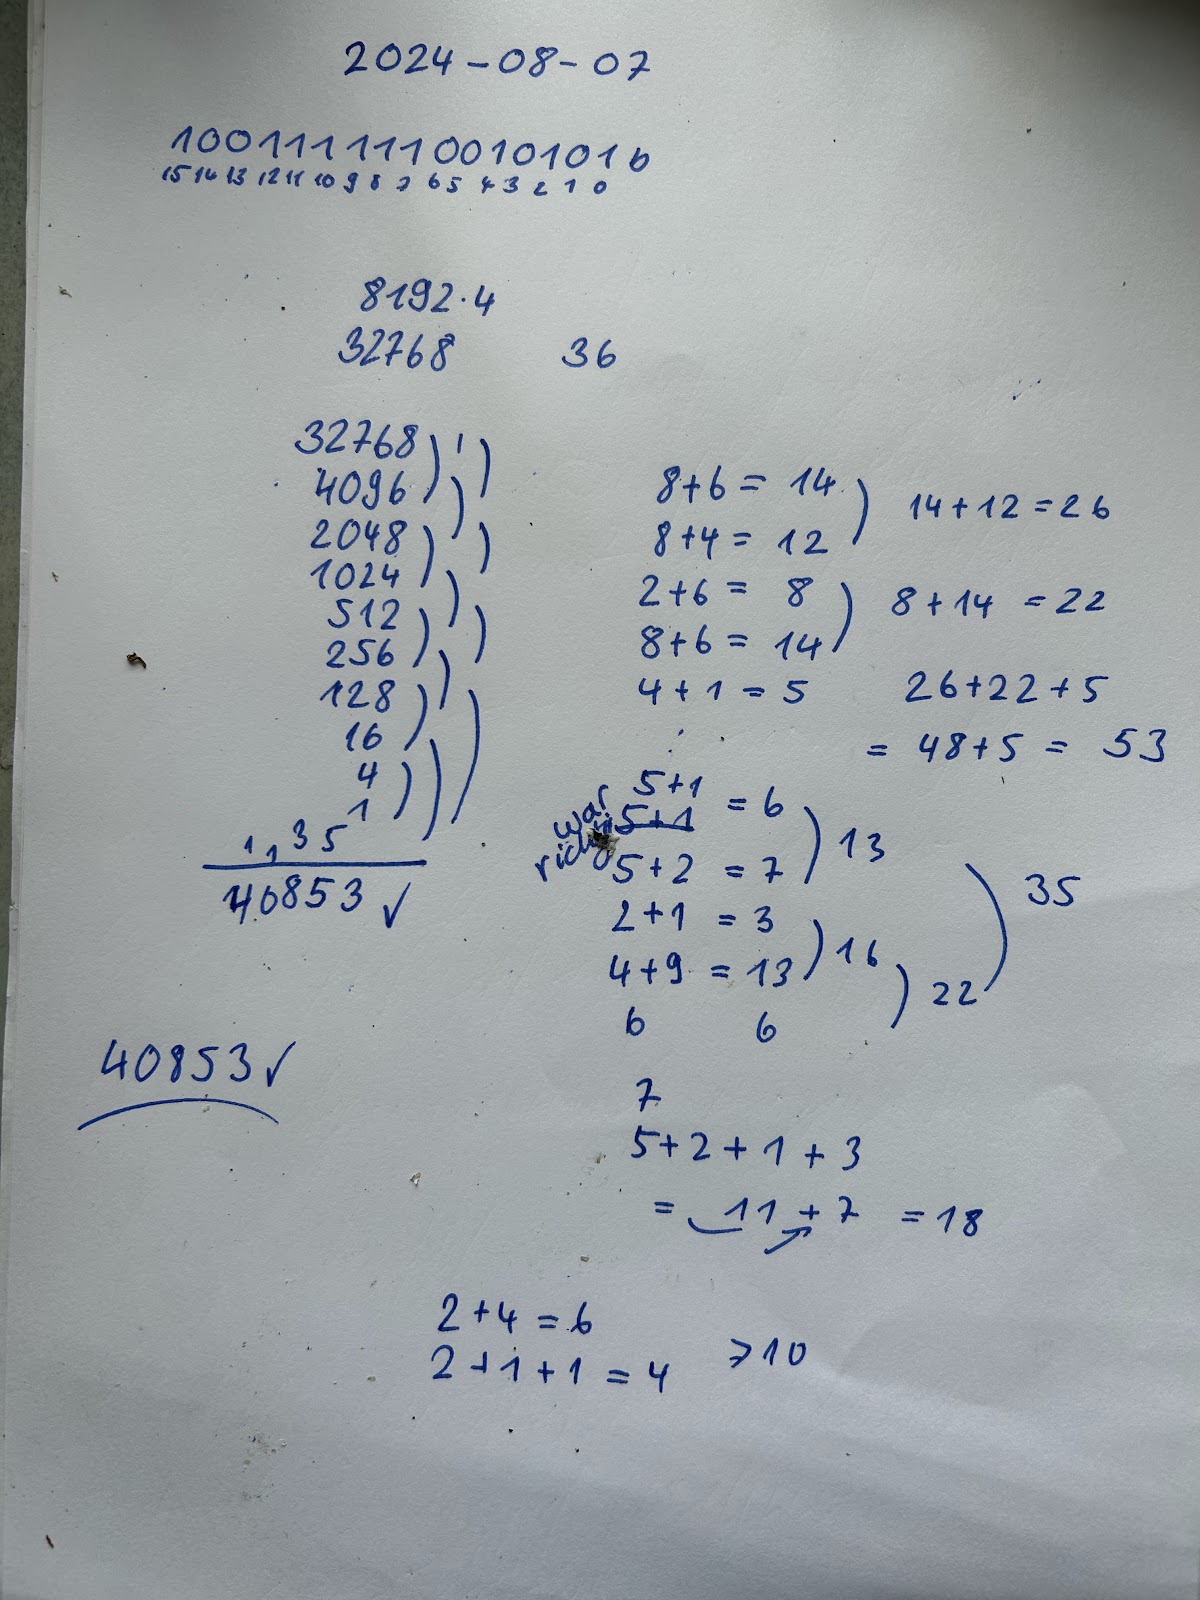 2024-08-07
1001111110010101b
15 14 13 12 11 10 9 8 7 6 5 4 3 2 1 0
8192·4
32768 36
32768
4096
2048
1024
512
256
128
16
4
1
1,35
40853 ✓
40853 ✓
8+6 = 14 ) 14+12 = 26
8+4 = 12
2+6 = 8 ) 8+14 = 22
8+6 = 14
4+1 = 5 26+22+5
= 48+5 = 53
5+1 = 6
war richtig 5+1
5+2 = 7 ) 13
2+1 = 3
4+9 = 13 ) 16
6 6 ) 22 ) 35
7
5+2+1+3
= 11 + 7 = 18
2+4 = 6
2+1+1 = 4 >10